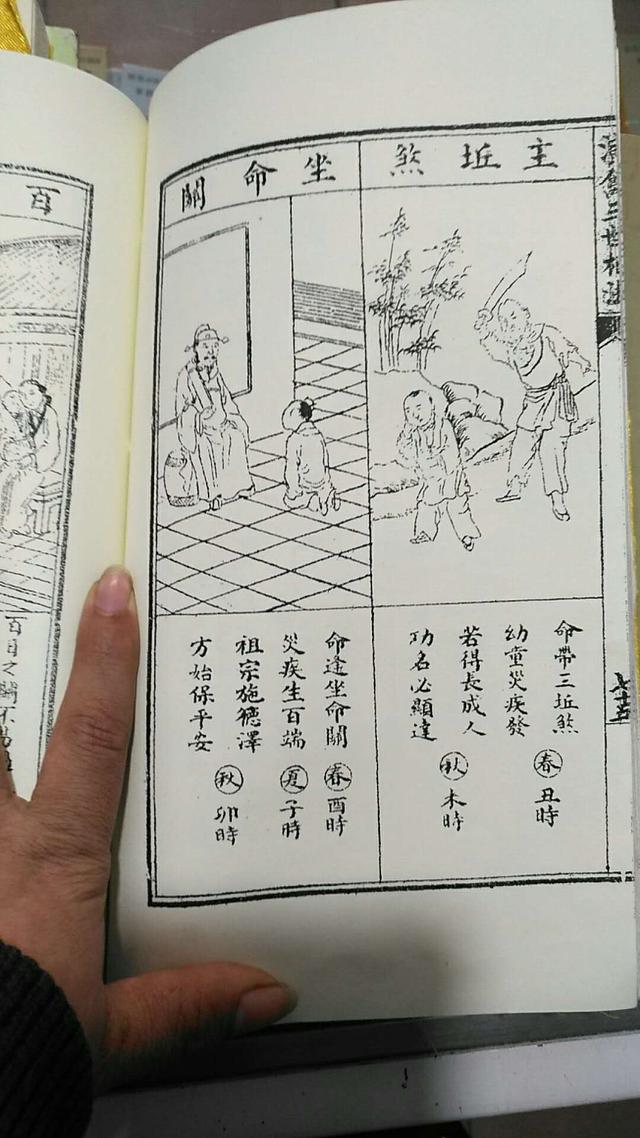 演禽三世相法
主坵煞
命帶三坵煞
幼童災疾發
若得長成人
功名必顯達
春 丑時
秋 未時
坐命關
命逢坐命關
災疾生百端
祖宗施德澤
方始保平安
春 酉時
夏 子時
秋 卯時
百
百日之關不